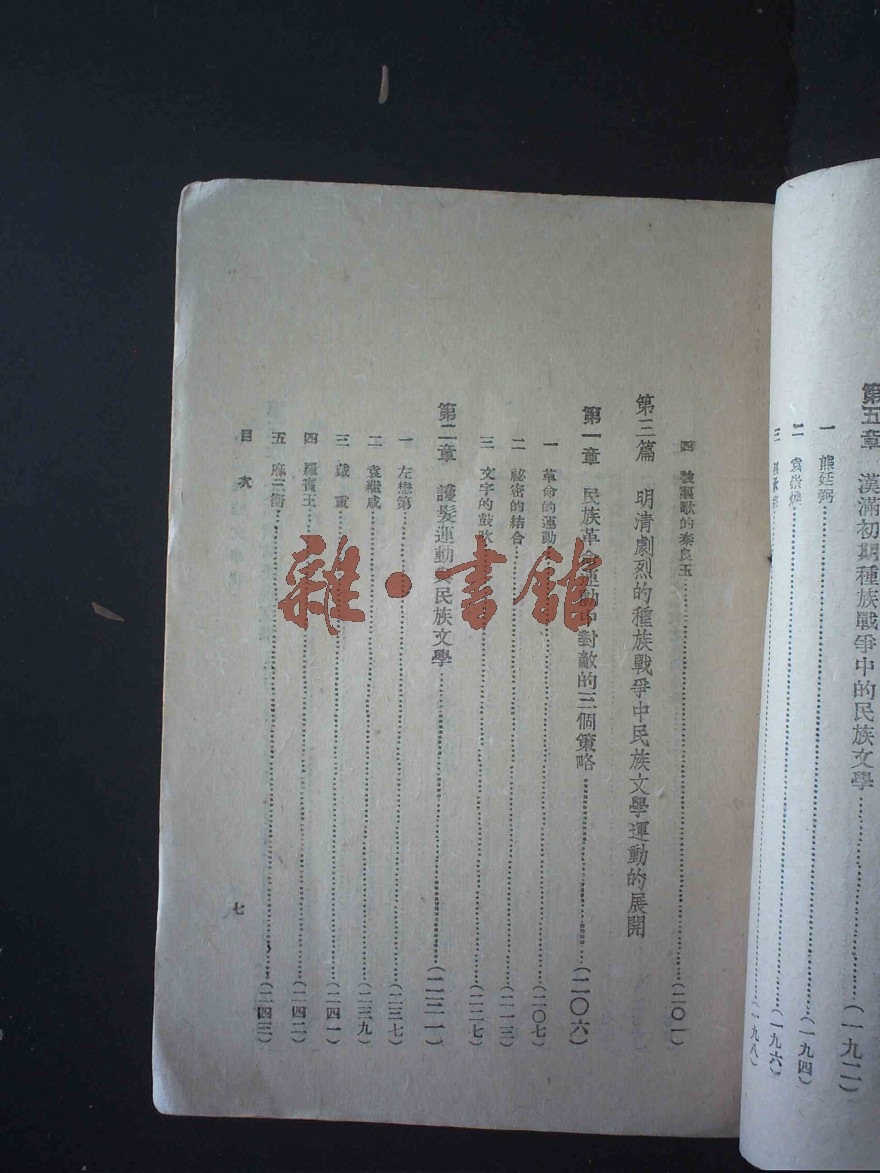 第五章 漢滿初期種族戰爭中的民族文學……(一九二)
一 熊廷弼……(一九四)
二 袁崇煥……(一九六)
三 孫承宗……(一九八)
四 被謳歌的秦良玉……(二〇一)
第三篇 明清劇烈的種族戰爭中民族文學運動的展開
第一章 民族革命運動中對敵的三個策略……(二〇六)
一 革命的運動……(二〇七)
二 祕密的結合……(二一三)
三 文字的鼓吹……(二二七)
第二章 護髮運動與民族文學……(二三一)
一 左懋第……(二三七)
二 袁繼咸……(二三九)
三 戴重……(二四一)
四 羅賓王……(二四二)
五 麻三衡……(二四三)
目次
七
雜·書館